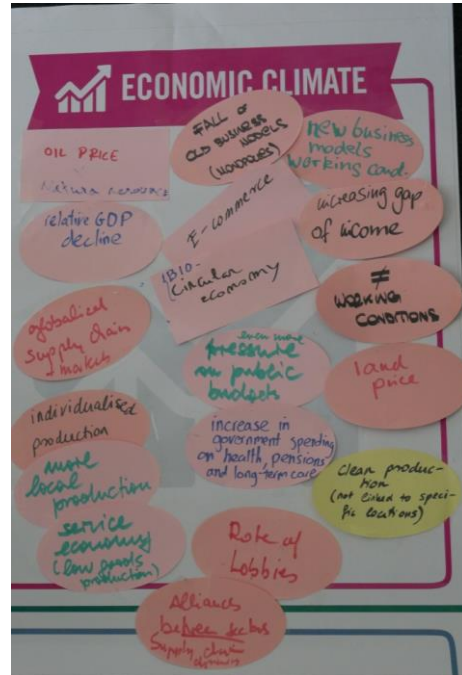 ECONOMIC CLIMATE
OIL PRICE
FALL OF
OLD BUSINESS
MODELS
new business
models
working cond.
relative GDP
decline
E-commerce
(BIO-
Circular
economy
increasing gap
of income
≠
WORKING
CONDITIONS
globalical
supply chain
markets
even more
pressure
on public
budgets
land
price
individualised
production
increase in
government spending
on health, pensions
and long-term care
more
local
production
clean produc-
tion
(not linked to speci-
fic locations)
service
economy
(low goods
production)
Role of
Lobbies
Alliances
between sectors
Supply chain